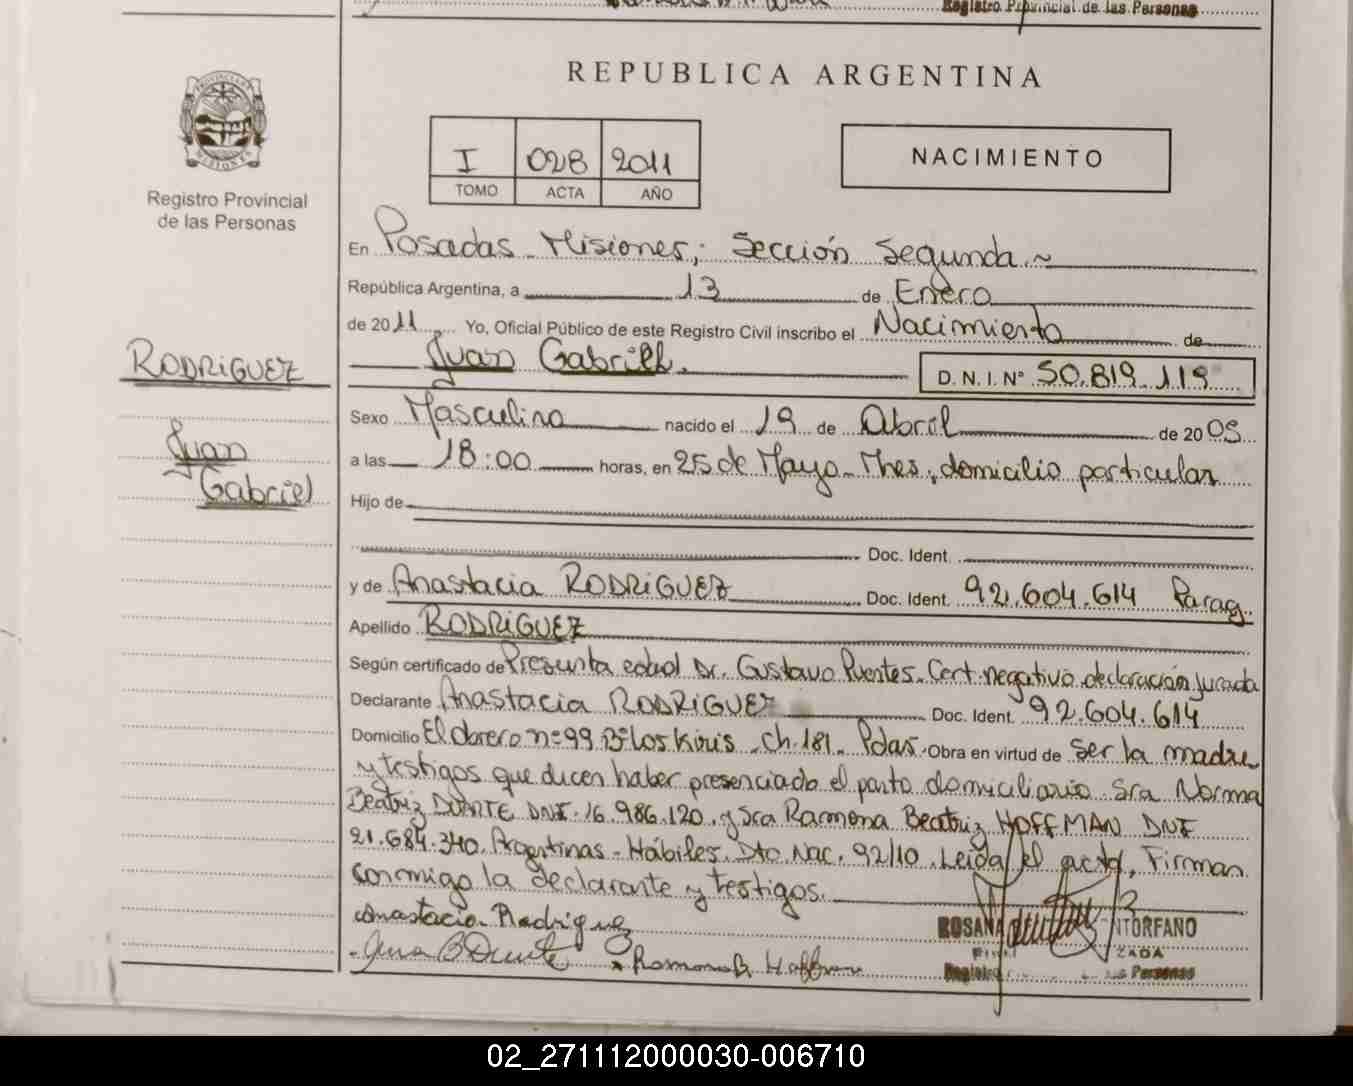 Registro Provincial de las Personas
REPUBLICA ARGENTINA
PROVINCIA DE MISIONES
Registro Provincial
de las Personas
I 028 2011
TOMO ACTA AÑO
NACIMIENTO
En Posadas - Misiones; Sección Segunda ~
República Argentina, a 13 de Enero
de 2011 Yo, Oficial Público de este Registro Civil inscribo el Nacimiento de
Juan Gabriel. D. N. I. Nº 50.819.119
RODRIGUEZ
Juan
Gabriel
Sexo Masculino nacido el 19 de Abril de 2005
a las 18:00 horas, en 25 de Mayo - Mnes; domicilio particular
Hijo de
Doc. Ident.
y de Anastacia RODRIGUEZ Doc. Ident. 92.604.614 Parag.
Apellido RODRIGUEZ
Según certificado de Presunta edad Dr. Gustavo Puentes. Cert. negativo, declaración jurada
Declarante Anastacia RODRIGUEZ Doc. Ident. 92.604.614
Domicilio El obrero nº 99 Bº Los Kiris - Ch. 181 - Pdas. Obra en virtud de ser la madre
y testigos que dicen haber presenciado el parto domiciliario Sra Norma
Beatriz DUARTE DNI. 16.986.120. y Sra Ramona Beatriz HOFFMAN DNI
21.684.340. Argentinas - Hábiles. Dto. Nac. 92/10. Leída el acta, Firman
conmigo la declarante y testigos.
Anastacia Rodriguez
ROSANA NTORFANO
ZADA
Ramona B. Hoffman
Registro las Personas
02_271112000030-006710